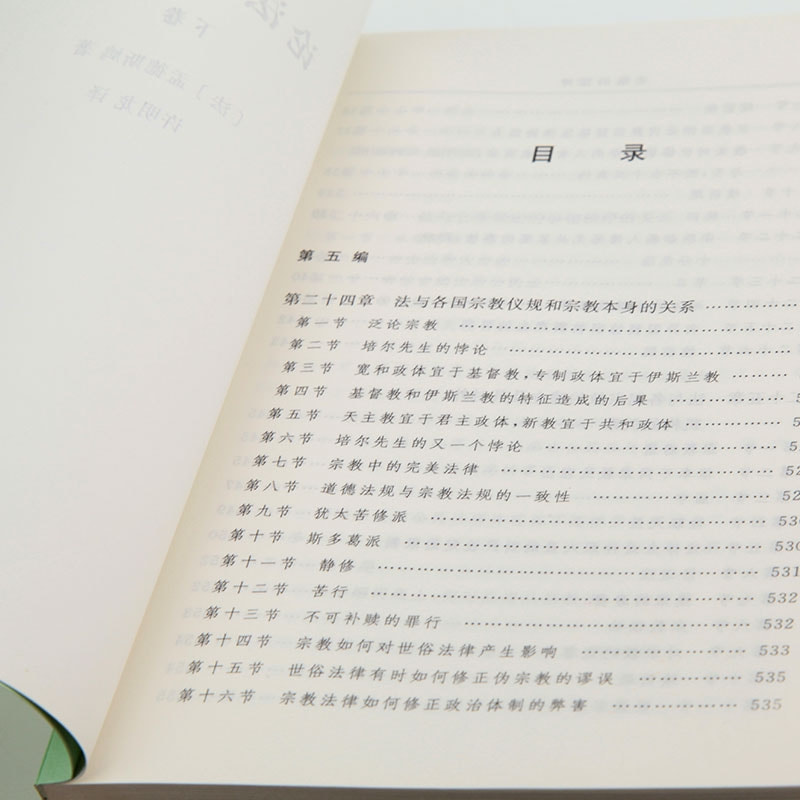 目 录
第五编
第二十四章 法与各国宗教仪规和宗教本身的关系 ……………
第一节 泛论宗教 ……………
第二节 培尔先生的悖论 ……………
第三节 宽和政体宜于基督教，专制政体宜于伊斯兰教 ………
第四节 基督教和伊斯兰教的特征造成的后果 ……………
第五节 天主教宜于君主政体，新教宜于共和政体 ……………
第六节 培尔先生的又一个悖论 ……………
第七节 宗教中的完美法律 ……………
第八节 道德法规与宗教法规的一致性 ……………
第九节 犹太苦修派 ……………
第十节 斯多葛派 …………… 530
第十一节 静修 …………… 531
第十二节 苦行 …………… 532
第十三节 不可补赎的罪行 …………… 532
第十四节 宗教如何对世俗法律产生影响 …………… 533
第十五节 世俗法律有时如何修正伪宗教的谬误 …………… 535
第十六节 宗教法律如何修正政治体制的弊害 …………… 535